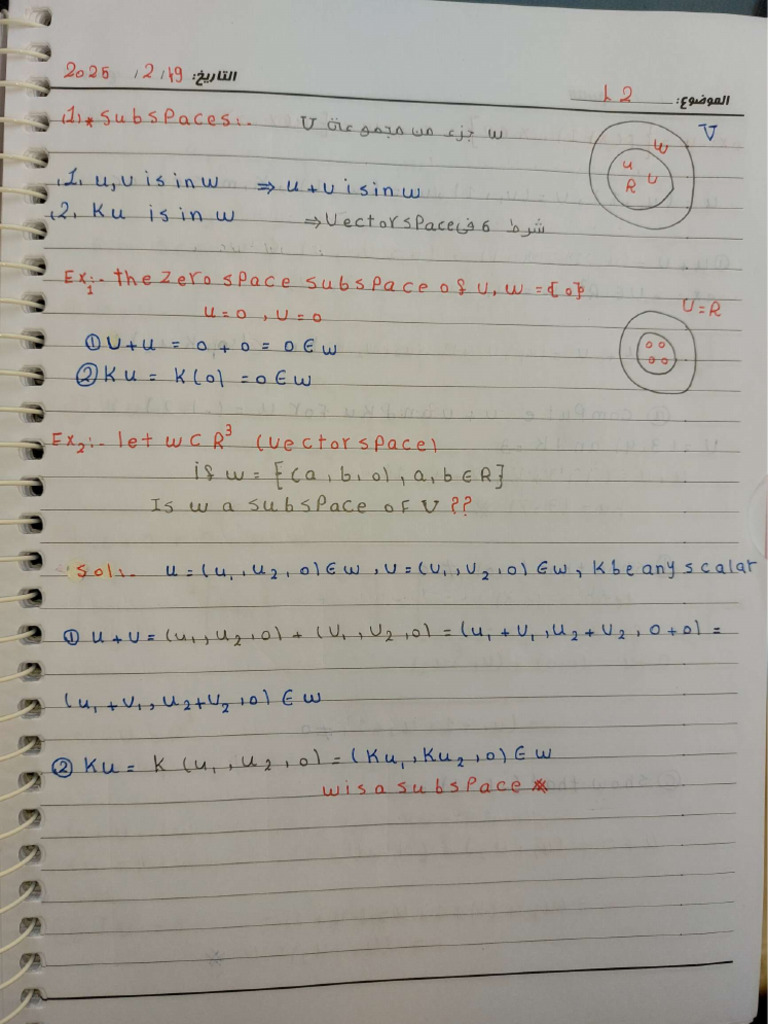 التاريخ: 19 / 2 / 2025
الموضوع: L2
1.* Subspaces:- w جزء من مجموعة V
V
w
u
R v
1. u, v is in w ⇒ u + v is in w
2. Ku is in w ⇒ Vector space شرط 6 فى
Ex1:- the zero space subspace of V, w = {0}
u = 0 , v = 0
V = R
① v + u = 0 + 0 = 0 ∈ w
② Ku = K(0) = 0 ∈ w
0 0
0 0
Ex2:- let w ⊂ R³ (vector space)
if w = {(a, b, 0), a, b ∈ R}
Is w a subspace of V ??
Sol:- u = (u₁, u₂, 0) ∈ w, v = (v₁, v₂, 0) ∈ w, K be any scalar
① u + v = (u₁, u₂, 0) + (v₁, v₂, 0) = (u₁ + v₁, u₂ + v₂, 0 + 0) =
(u₁ + v₁, u₂ + v₂, 0) ∈ w
② Ku = K (u₁, u₂, 0) = (Ku₁, Ku₂, 0) ∈ w
w is a subspace *